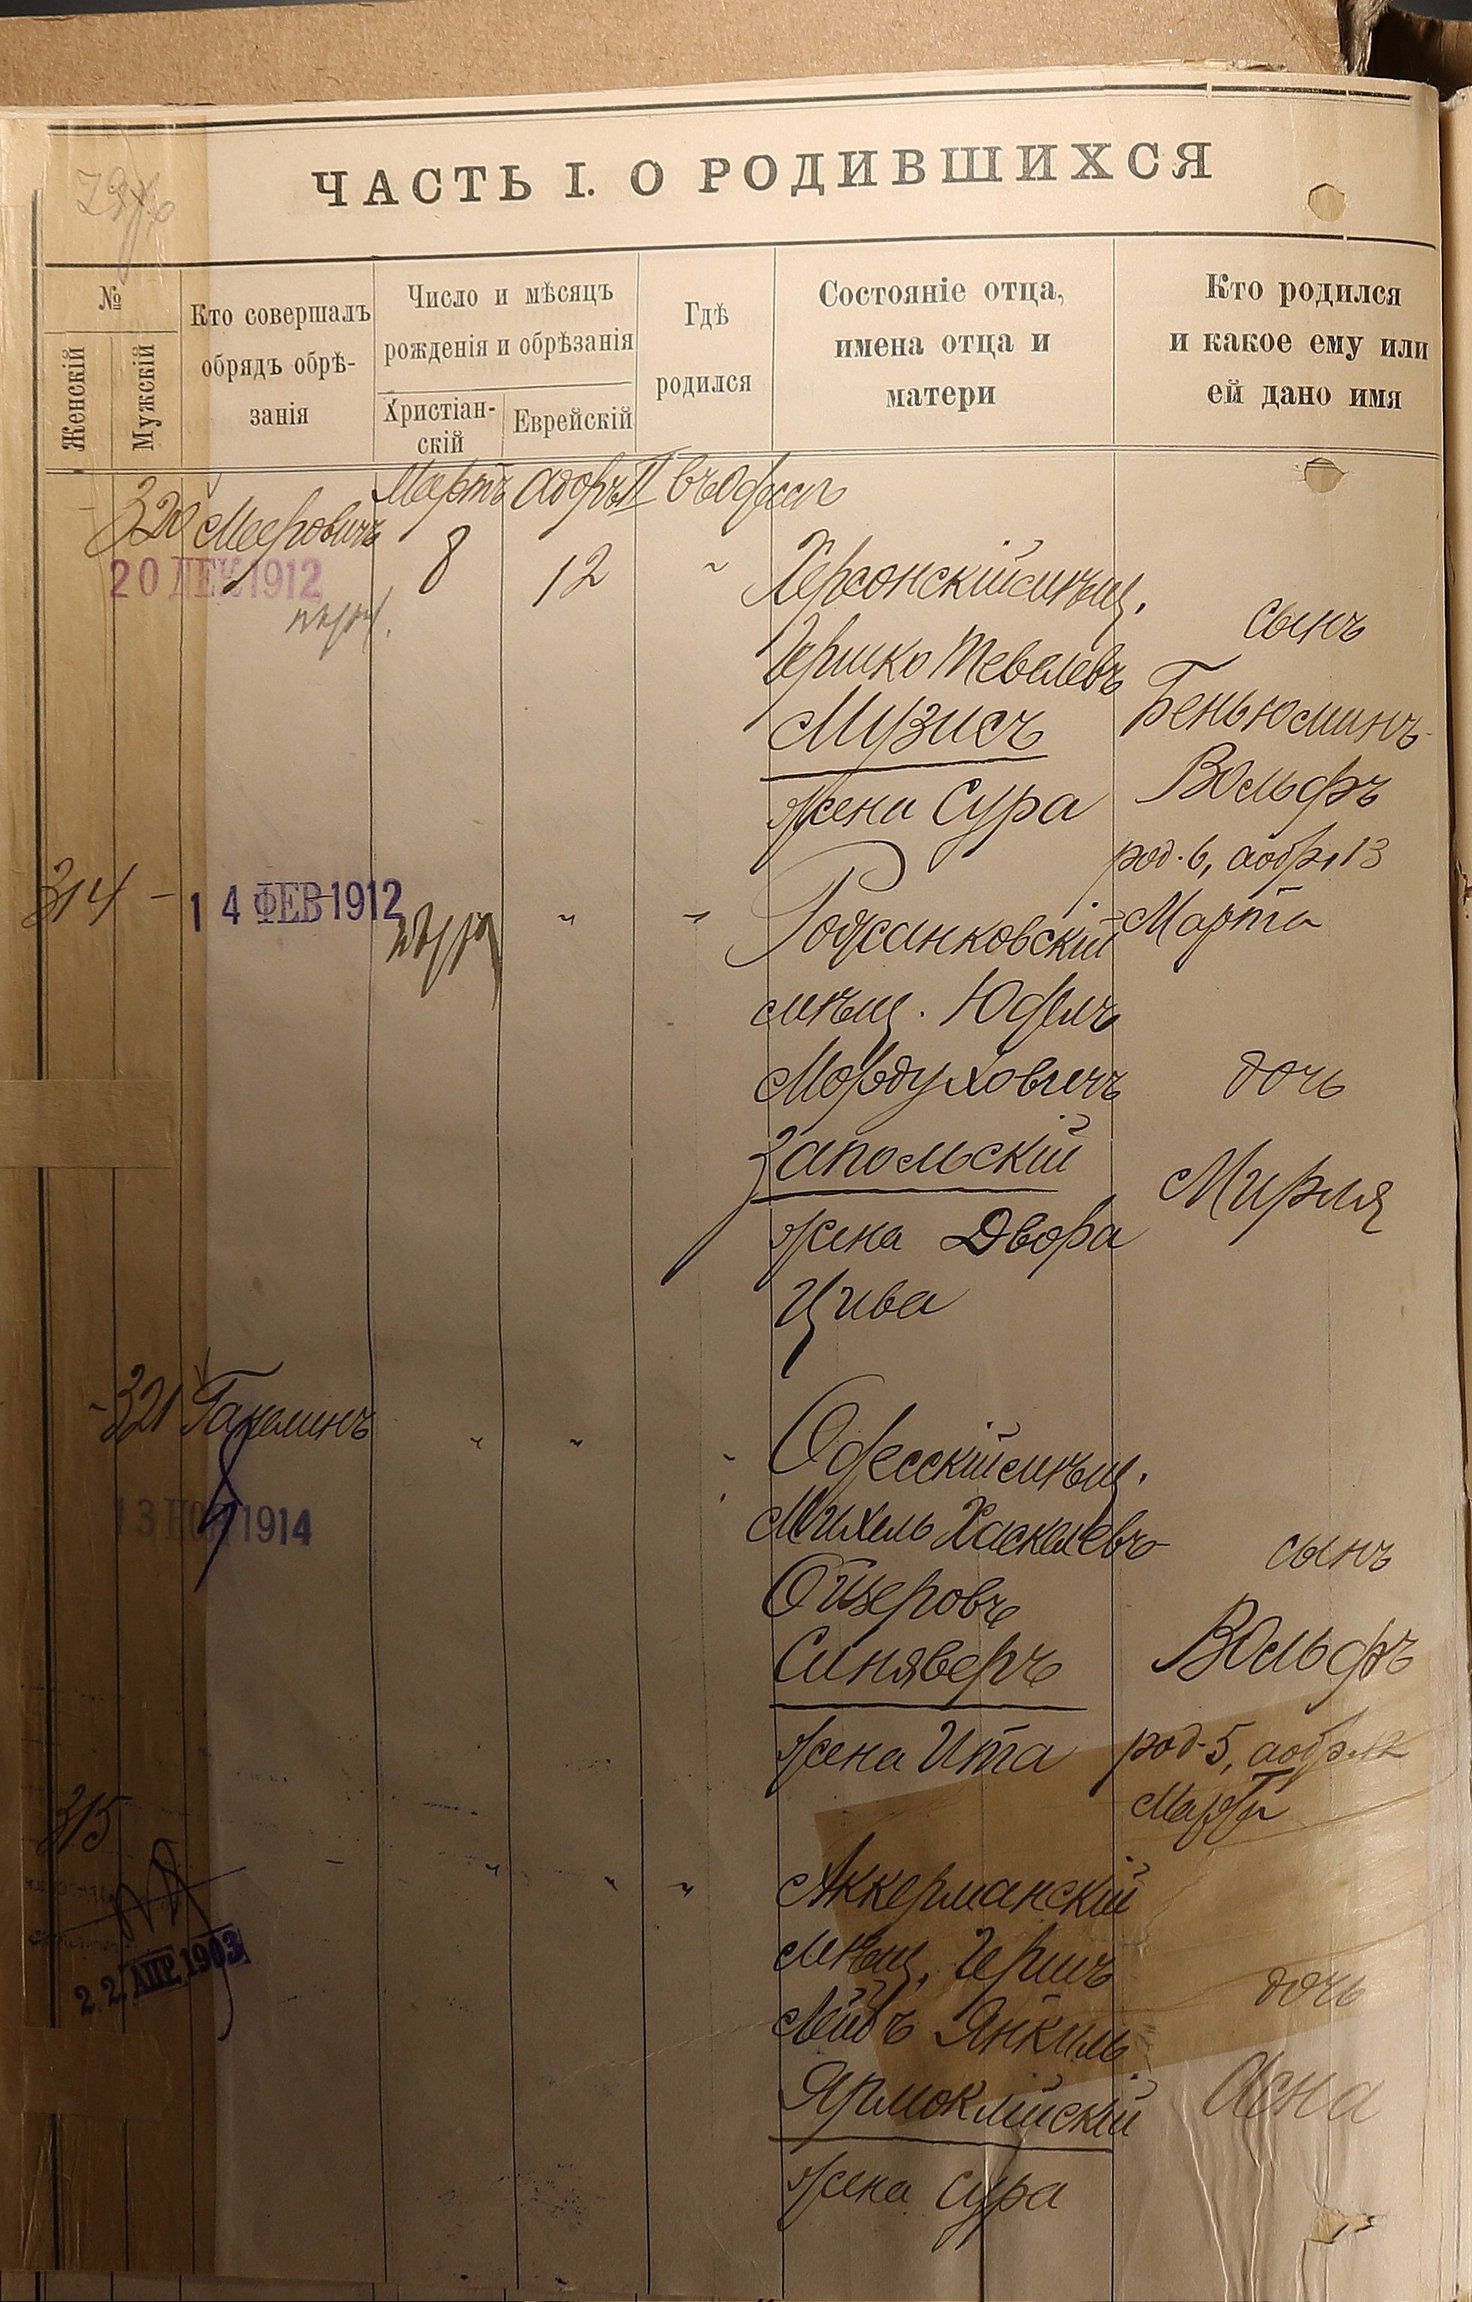 ЧАСТЬ I. О РОДИВШИХСЯ
№
Женскій
Мужскій
Кто совершалъ
обрядъ обрѣ-
занія
Число и мѣсяцъ
рожденія и обрѣзанія
Христіан-
скій
Еврейскій
Гдѣ
родился
Состояніе отца,
имена отца и
матери
Кто родился
и какое ему или
ей дано имя
Мартъ адоръ II въ Одессѣ
320 Мееровичъ
8 12 "
20 ДЕК 1912
Херсонскій мѣщ.
Гершко Тевелевъ
Музисъ
жена Сура
сынъ
Беньюминъ-
Вольфъ
род. 6, а обр. 13
Марта
314 -
14 ФЕВ 1912
" "
Рожанковскій
мѣщ. Юдель
Мордуховичъ
Запольскій
жена Двора
Цива
дочь
Мирля
- 321 Ганелинъ " " "
13 НОЯ 1914
Одесскій мѣщ.
Михель Хаскелевъ
Ойзеровъ
Синяверъ
жена Ита
сынъ
Вольфъ
род. 5, а обр. 12
Марта
315
- " " "
22 АПР. 1903
Аккерманскій
мѣщ. Гершъ
Лейбъ Янкиль
Ярмоклійскій
жена Сура
дочь
Асна